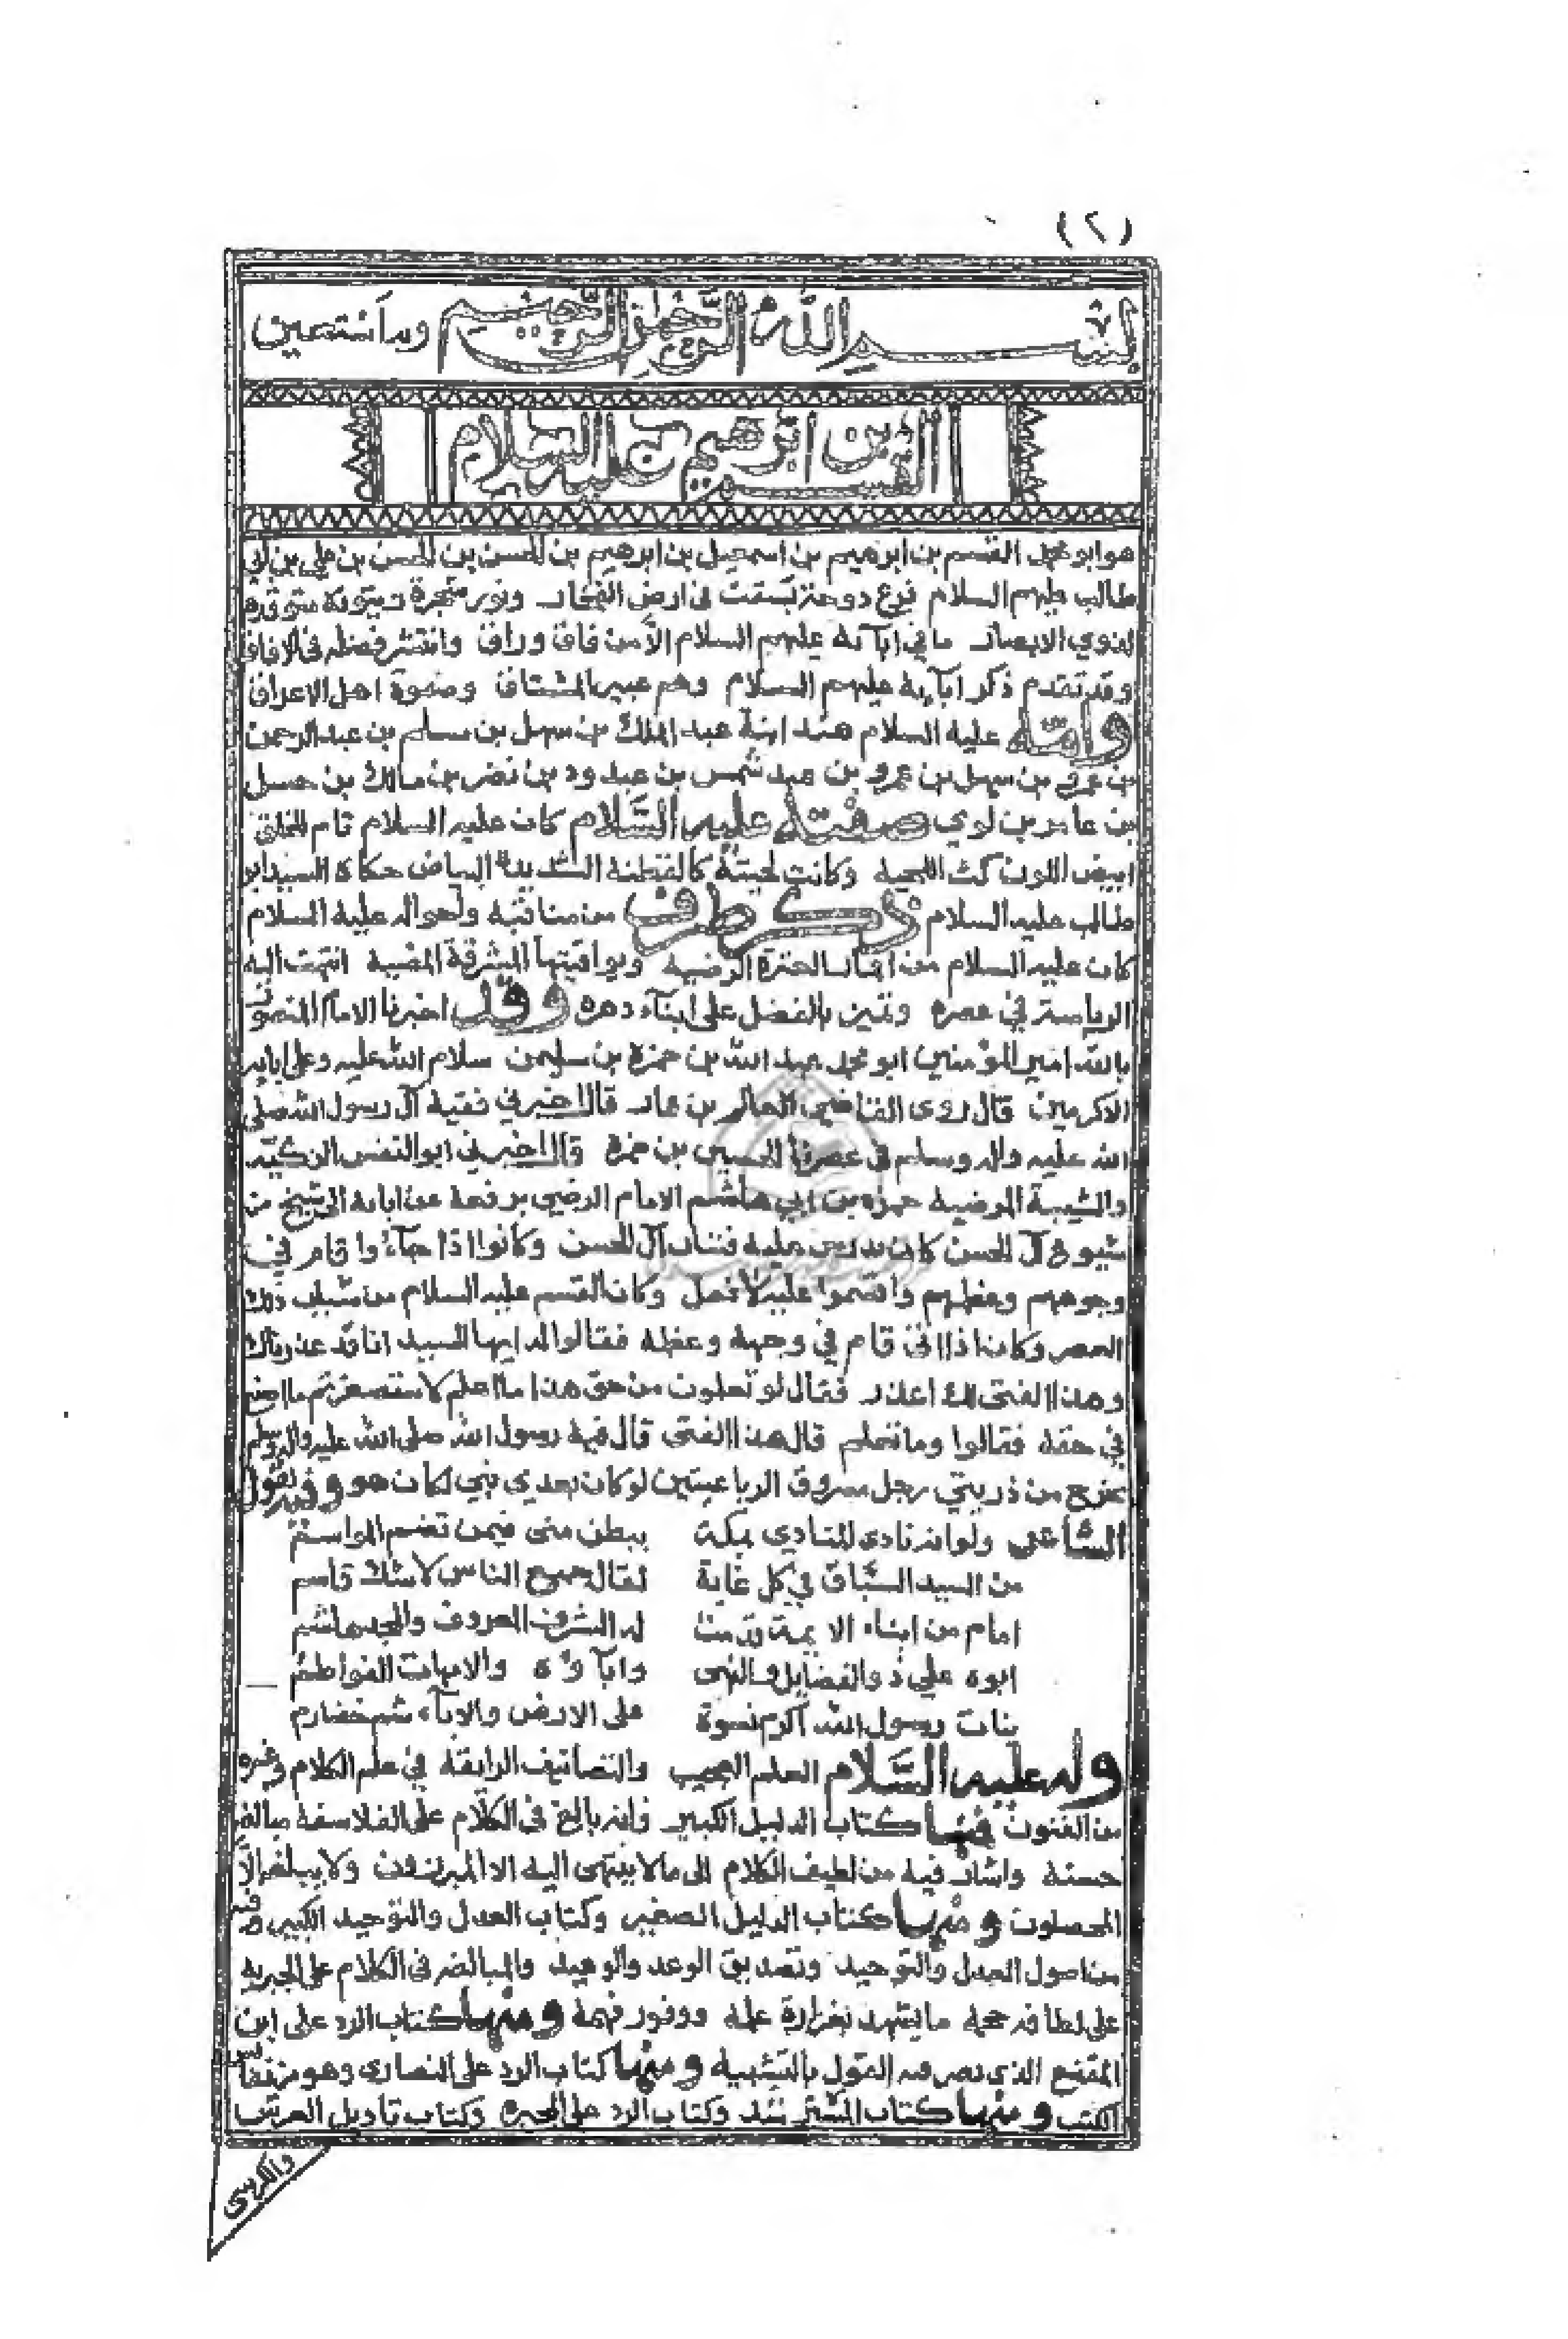 (٢)
بسم الله الرحمن الرحيم وبه نستعين
القسم بن ابرهيم عليه السلام
هو ابو محمد القسم بن ابرهيم بن اسمعيل بن ابرهيم بن الحسن بن الحسن بن علي بن ابي
طالب عليهم السلام فرع دوحة بسقت في ارض الفخار ونور شجرة زيتونة متوقدة
لذوي الابصار ما في ابآئه عليهم السلام الا من فاق وراق وانتشر فضله في الافاق
وقد تقدم ذكر ابآيه عليهم السلام وهم عبير المشتاق وصفوة اهل الاعراق
وامه عليه السلام هند ابنة عبد الملك بن سهل بن مسلم بن عبد الرحمن
بن عمرو بن سهل بن عمرو بن عبد شمس بن عبد ود بن نضر بن مالك بن حسل
بن عامر بن لوي صفته عليه السلام كان عليه السلام تام الخلق
ابيض اللون كث اللحية وكانت لحيته كالقطنه الشديدة البياض حكاه السيد ابو
طالب عليه السلام ذكر طرف من مناقبه واحواله عليه السلام
كان عليه السلام من اقمار العترة الرضيه ويواقيتها المشرقة المضية انتهت اليه
الرياسة في عصره وتميز بالفضل على ابنآء دهره وقد اخبرنا الامام المنصور
بالله امير المؤمنين ابو محمد عبد الله بن حمزة بن سليمن سلام الله عليه وعلى ابايه
الاكرمين قال روى القاضي العالم بن عمار قال اخبرني فقيه آل رسول الله صلى
الله عليه واله وسلم في عصرنا الحسين بن حمزه قال اخبرني ابو النفس الزكيه
والشيبة المرضيه حمزه بن ابي هاشم الامام الرضي يرفعه عن ابائه الى شيخ من
شيوخ آل الحسن كان يدرس عليه فتيان آل الحسن وكانوا اذا جآءوا قام في
وجوههم وعظمهم واقسموا عليه لا فعل وكان القسم عليه السلام من شباب ذلك
العصر وكان اذا اتى قام في وجهه وعظمه فقالوا له ايها السيد انا قد عذرناك
وهذا الفتى لك اعذر فقال لو تعلمون من حق هذا ما اعلم لاستصغرتم ما اصنع
في حقه فقالوا وما تعلم قال هذا الفتى قال فيه رسول الله صلى الله عليه واله وسلم
يخرج من ذريتي رجل مسروق الرباعيتين لو كان بعدي نبي لكان هو وفيه يقول
الشاعر ولو انه نادى المنادي بمكة ببطن منى فيمن تضم المواسم
من السيد السباق في كل غاية لقال جميع الناس لا شك قاسم
امام من ابناء الايمة قدمت له الشرف المعروف والمجد هاشم
ابوه علي ذو الفضايل والنهى وابآؤه والامهات الفواطم
بنات رسول الله اكرم نسوة على الارض والابآء شم خضارم
وله عليه السلام العلم العجيب والتصانيف الرايقة في علم الكلام وغيره
من الفنون فمنها كتاب الدليل الكبير فانه بالغ في الكلام على الفلاسفة مبالغه
حسنة واشار فيه من لطيف الكلام الى ما لا ينتهى اليه الا المبرزون ولا يبلغه الا
المحصلون ومنها كتاب الدليل الصغير وكتاب العدل والتوحيد الكبير وفيه
من اصول العدل والتوحيد وتصديق الوعد والوعيد والمبالغه في الكلام على الجبريه
على لطافة حجمه ما يشهد بغزارة علمه ووفور فهمه ومنها كتاب الرد على ابن
المقفع الذي نصر فيه القول بالتشبيه ومنها كتاب الرد على النصارى وهو من نفائس
الكتب ومنها كتاب المسترشد وكتاب الرد على المجبرة وكتاب تاويل العرش
والكرسي